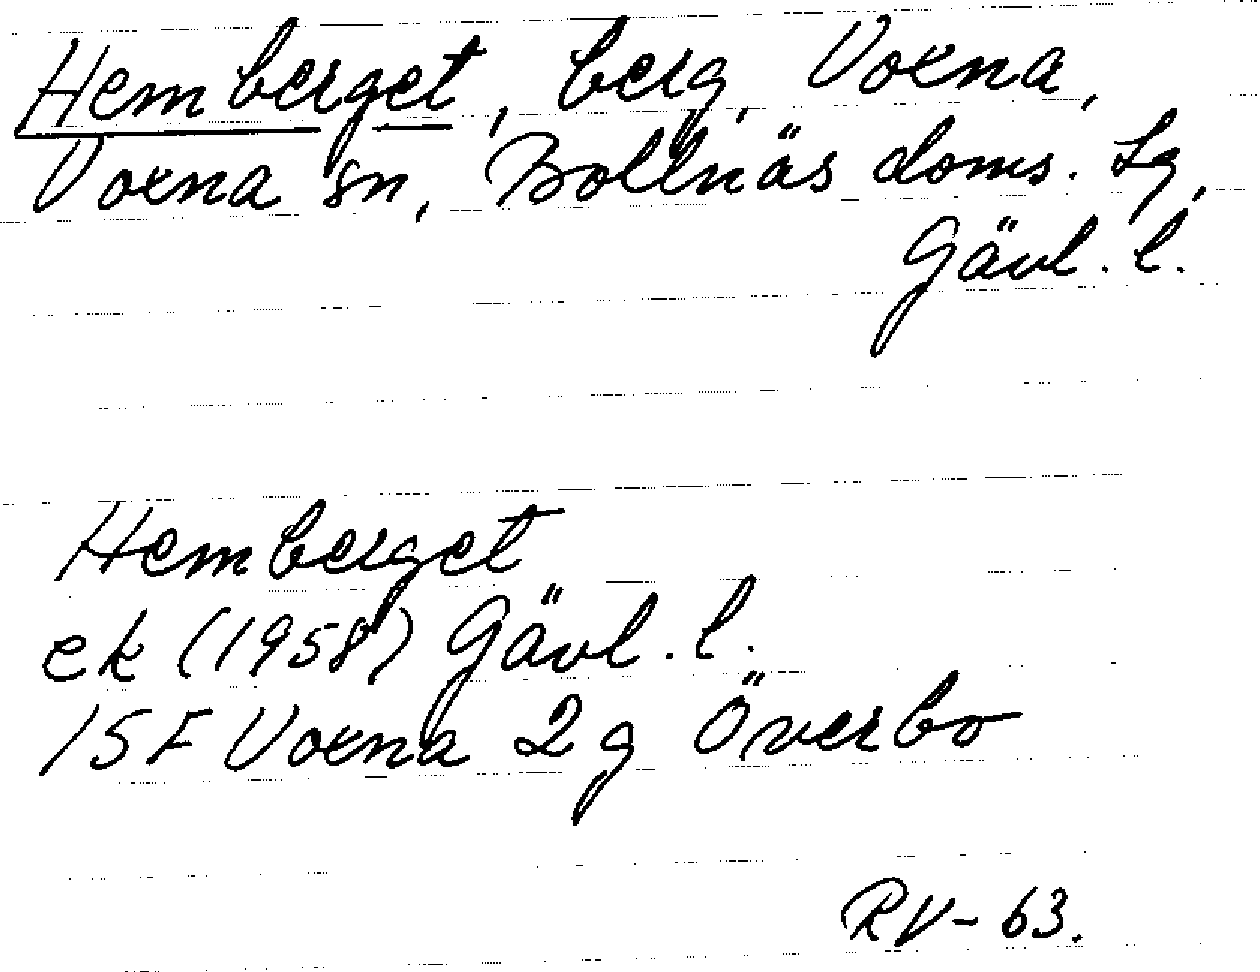 Hemberget, berg, Voxna,
Voxna sn, Bollnäs doms. lg,
Gävl. l.
Hemberget
ek (1958) Gävl. l.
15F Voxna 2g Överbo
RV-63.